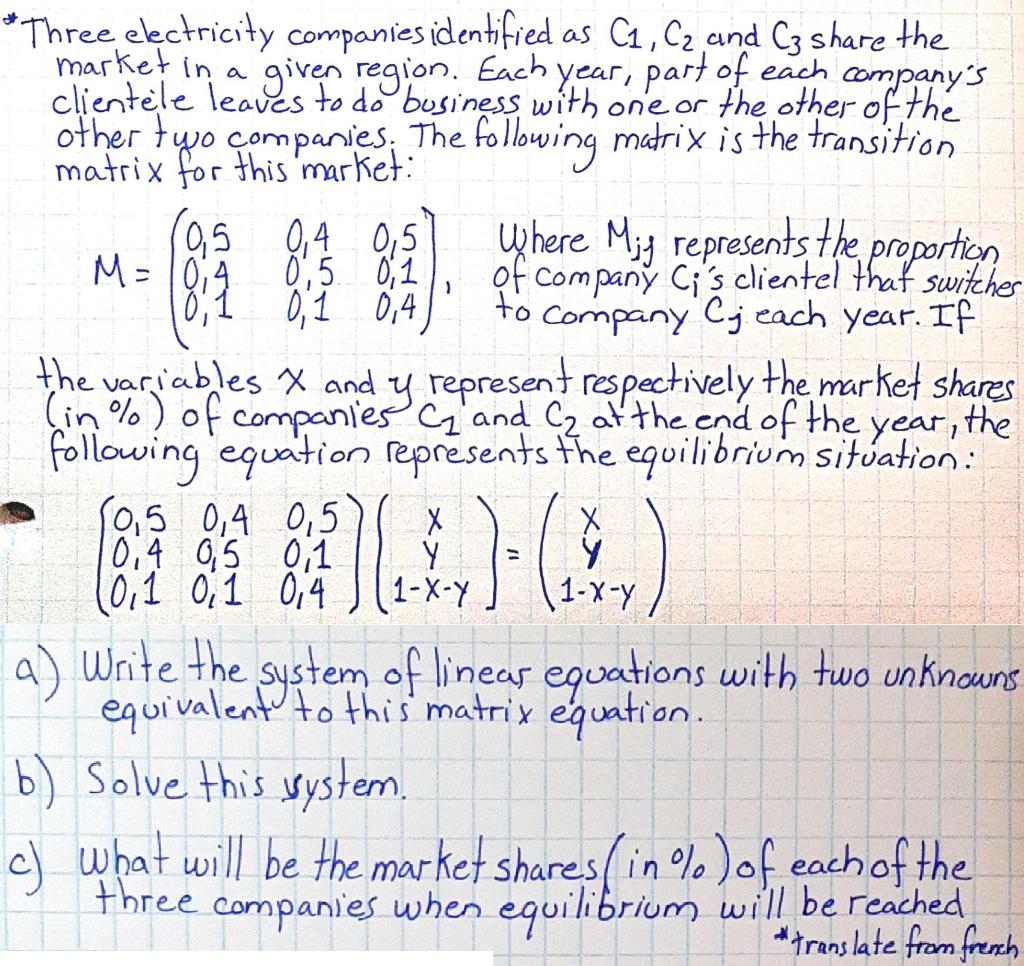 *Three electricity companies identified as C1, C2 and C3 share the
market in a given region. Each year, part of each company's
clientèle leaves to do business with one or the other of the
other two companies. The following matrix is the transition
matrix for this market:
M = (0,5 0,4 0,5
0,4 0,5 0,1
0,1 0,1 0,4),
Where Mij represents the proportion
of company Ci's clientel that switches
to company Cj each year. If
the variables x and y represent respectively the market shares
(in %) of companies C1 and C2 at the end of the year, the
following equation represents the equilibrium situation:
(0,5 0,4 0,5) ( x ) = ( x )
(0,4 0,5 0,1) ( y ) = ( y )
(0,1 0,1 0,4) (1-x-y) (1-x-y)
a) Write the system of linear equations with two unknowns
equivalent to this matrix equation.
b) Solve this system.
c) What will be the market shares (in %) of each of the
three companies when equilibrium will be reached
*translate from french